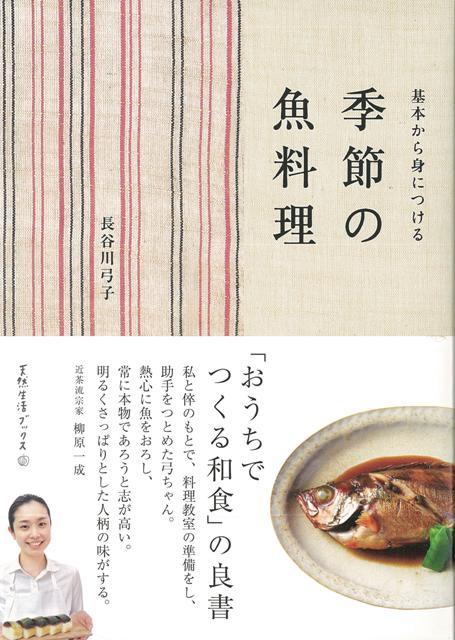 基本から身につける
季節の
魚料理
長谷川弓子
「おうちで
つくる和食」の良書
私と倅のもとで、料理教室の準備をし、
助手をつとめた弓ちゃん。
熱心に魚をおろし、
常に本物であろうと志が高い。
明るくさっぱりとした人柄の味がする。
近茶流宗家 柳原一成
天然生活ブックス